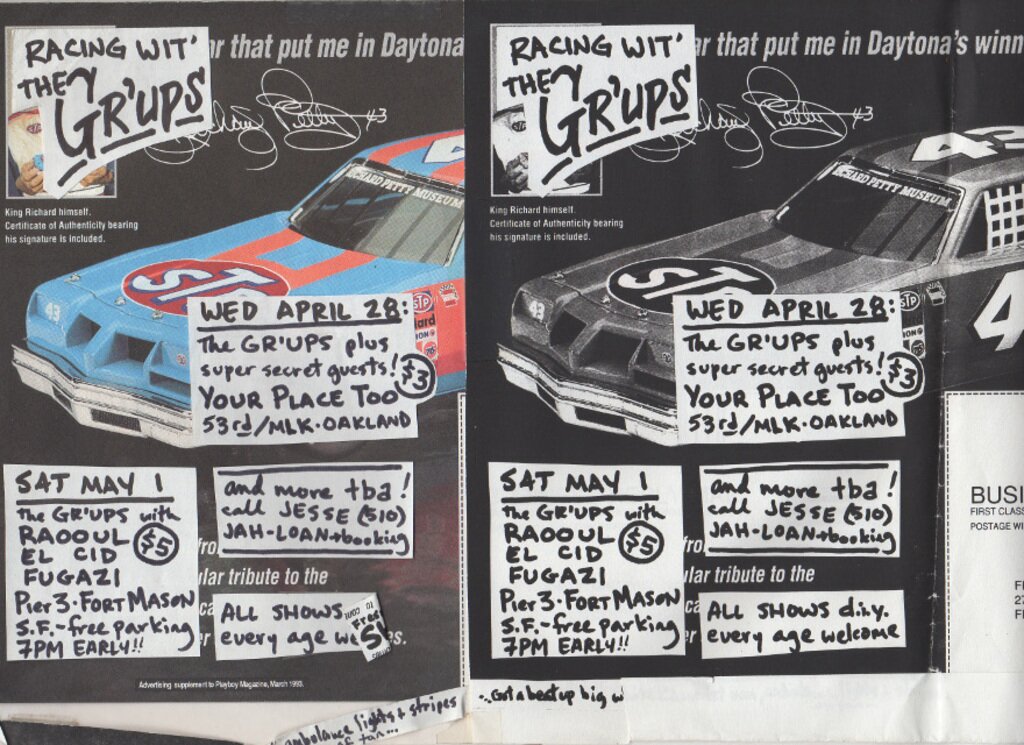 RACING WIT'
THEY
GR'UPS
ar that put me in Daytona
#3
King Richard himself.
Certificate of Authenticity bearing
his signature is included.
RICHARD PETTY MUSEUM
43
STP
STP
WED APRIL 28:
The GR'UPS plus
super secret guests!
$3
YOUR PLACE TOO
53rd/MLK·OAKLAND
SAT MAY 1
The GR'UPS with
RAOOUL
EL CID
$5
FUGAZI
Pier 3·FORT MASON
S.F.-free parking
7PM EARLY!!
and more tba!
call JESSE (510)
JAH-LOAN→booking
ular tribute to the
ALL SHOWS
every age we
FREE
5
Advertising supplement to Playboy Magazine, March 1993.
ambulance lights & stripes
RACING WIT'
THEY
GR'UPS
ar that put me in Daytona's winn
#3
King Richard himself.
Certificate of Authenticity bearing
his signature is included.
RICHARD PETTY MUSEUM
43
43
4
STP
STP
WED APRIL 28:
The GR'UPS plus
super secret guests!
$3
YOUR PLACE TOO
53rd/MLK·OAKLAND
SAT MAY 1
The GR'UPS with
RAOOUL
EL CID
$5
FUGAZI
Pier 3·FORT MASON
S.F.-free parking
7PM EARLY!!
and more tba!
call JESSE (510)
JAH-LOAN→booking
ular tribute to the
ALL SHOWS d.i.y.
every age welcome
BUSI
FIRST CLASS
POSTAGE WI
...Got a beat up big w